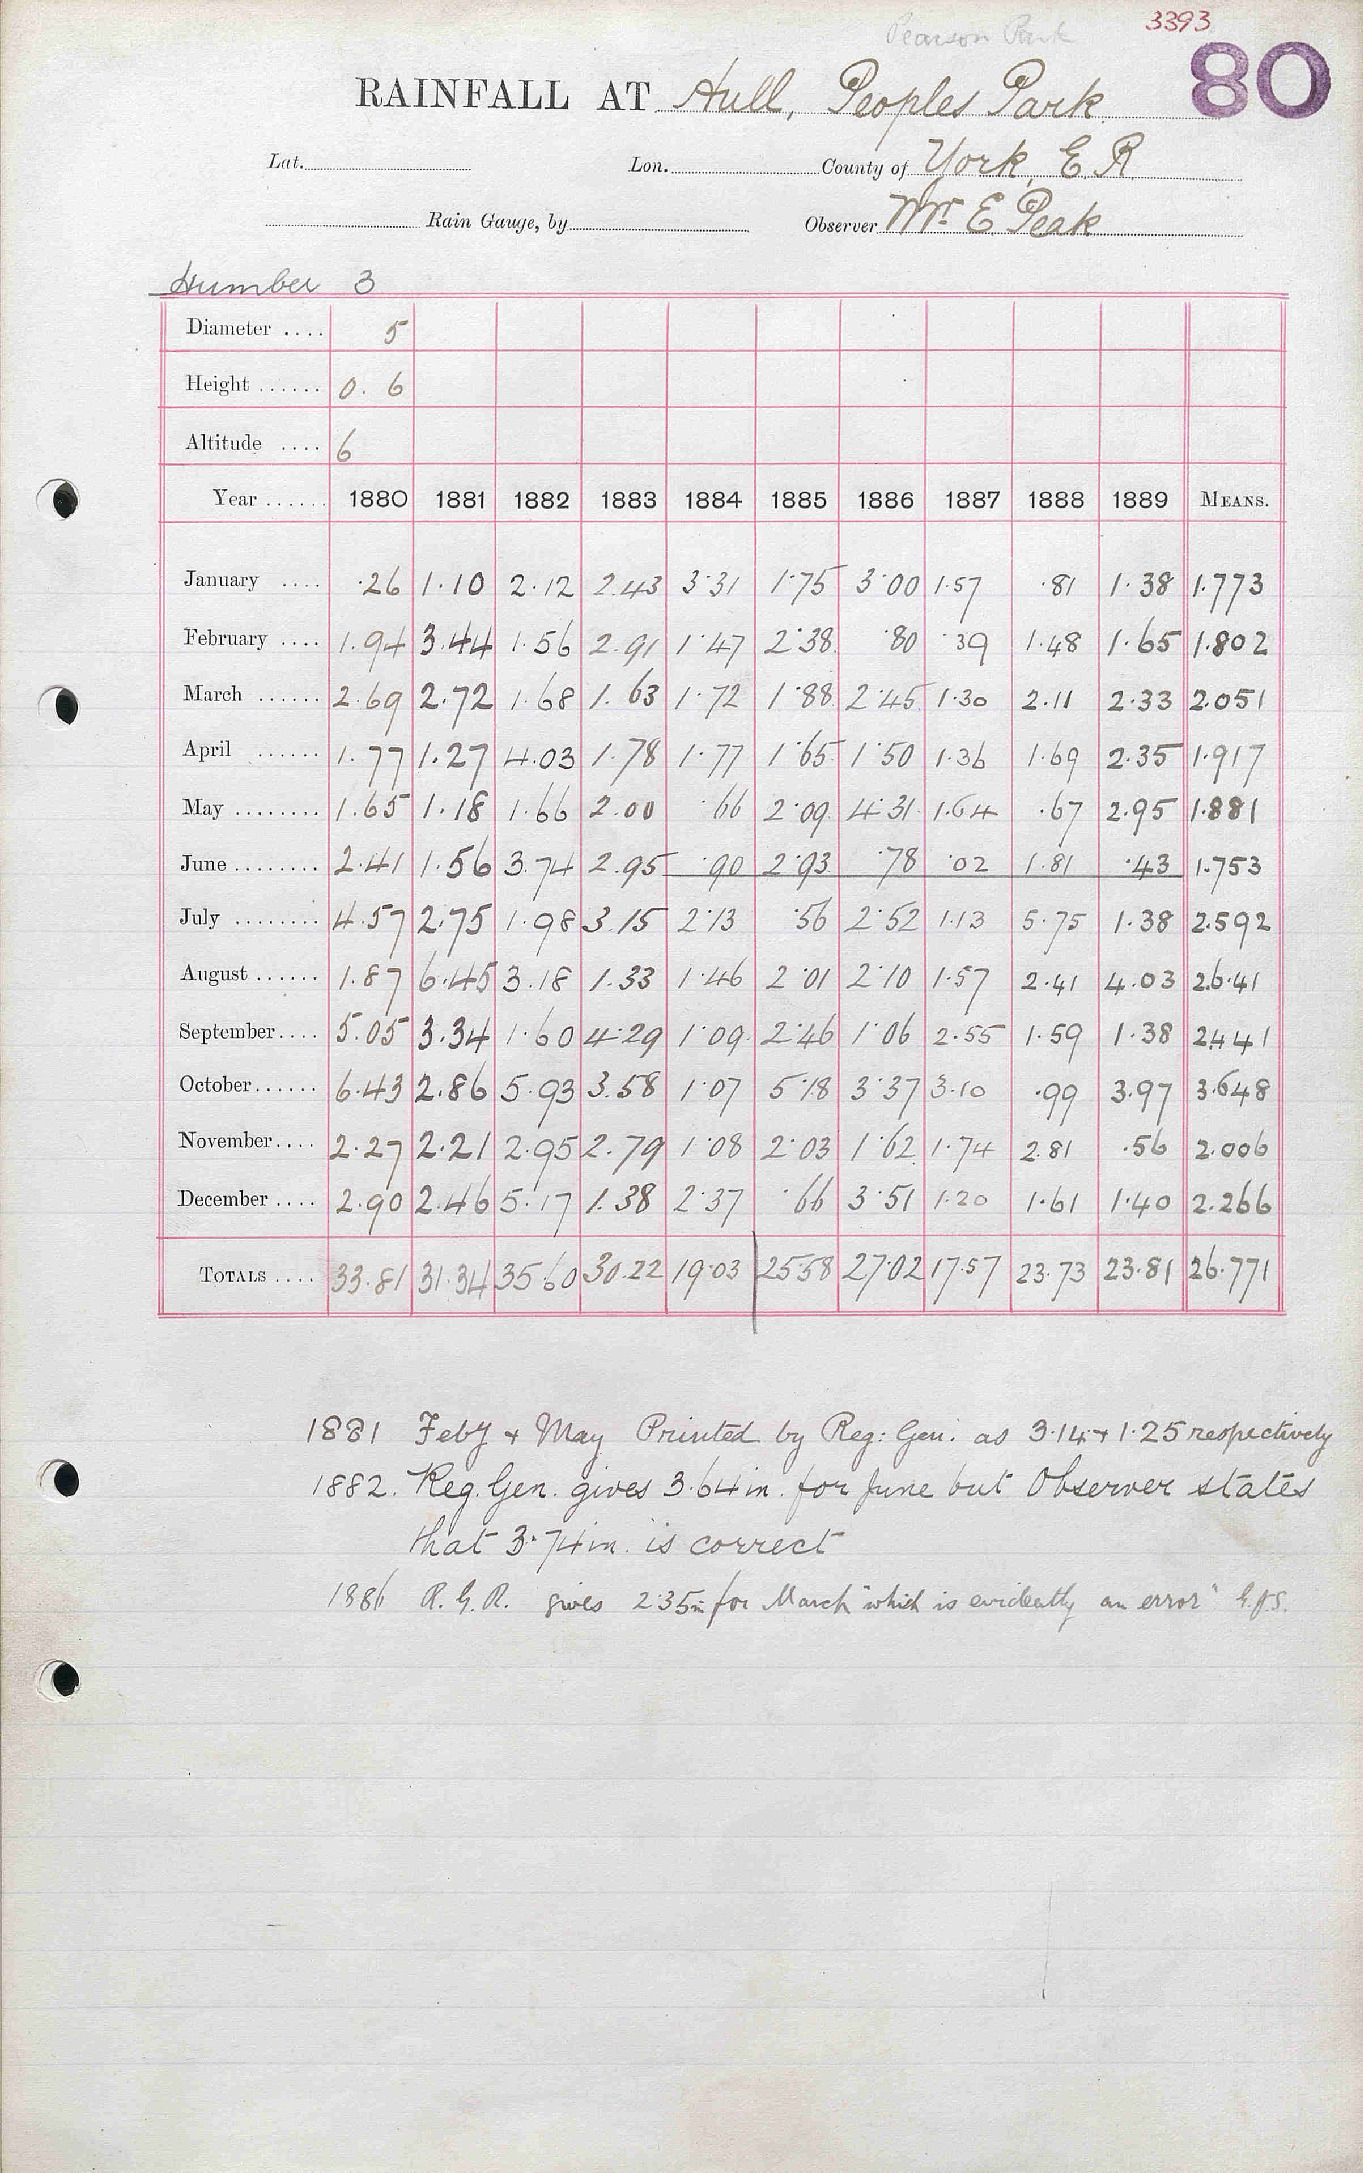 3393
Pearson Park
80
RAINFALL AT Hull, Peoples Park
Lat. Lon. County of York, E. R
Rain Gauge, by Observer Mr. E Peak
Humber 3
Diameter .... 5
Height ...... 0. 6
Altitude .... 6
Year ...... 1880 1881 1882 1883 1884 1885 1886 1887 1888 1889 MEANS.
January .... ·26 1.10 2.12 2.43 3·31 1·75 3·00 1.57 ·81 1.38 1.773
February .... 1.94 3.44 1.56 2.91 1·47 2·38 ·80 ·39 1.48 1.65 1.802
March ...... 2.69 2.72 1.68 1.63 1·72 1·88 2·45 1.30 2.11 2.33 2.051
April ...... 1.77 1.27 4.03 1.78 1·77 1·65 1·50 1.36 1.69 2.35 1.917
May ........ 1.65 1.18 1.66 2.00 ·66 2·09 4·31 1.64 ·67 2.95 1.881
June ........ 2.41 1.56 3.74 2.95 ·90 2·93 ·78 ·02 1.81 ·43 1.753
July ........ 4.57 2.75 1.98 3.15 2·13 ·56 2·52 1.13 5.75 1.38 2.592
August ...... 1.87 6.45 3.18 1.33 1·46 2·01 2·10 1.57 2.41 4.03 26.41
September .... 5.05 3.34 1.60 4.29 1·09 2·46 1·06 2.55 1.59 1.38 2441
October ...... 6.43 2.86 5.93 3.58 1·07 5·18 3·37 3.10 ·99 3.97 3.648
November .... 2.27 2.21 2.95 2.79 1·08 2·03 1·62 1.74 2.81 ·56 2.006
December .... 2.90 2.46 5.17 1.38 2·37 ·66 3·51 1.20 1.61 1.40 2.266
TOTALS .... 33.81 31.34 35.60 30.22 19·03 25·58 27·02 17.57 23.73 23.81 26.771
1881 Feby + May Printed by Reg: Gen. as 3.14 + 1.25 respectively
1882. Reg. Gen. gives 3.64 in. for June but Observer states
that 3·74 in. is correct
1886 R. G. R. gives 2·35 in for March "which is evidently an error" G.J.S.